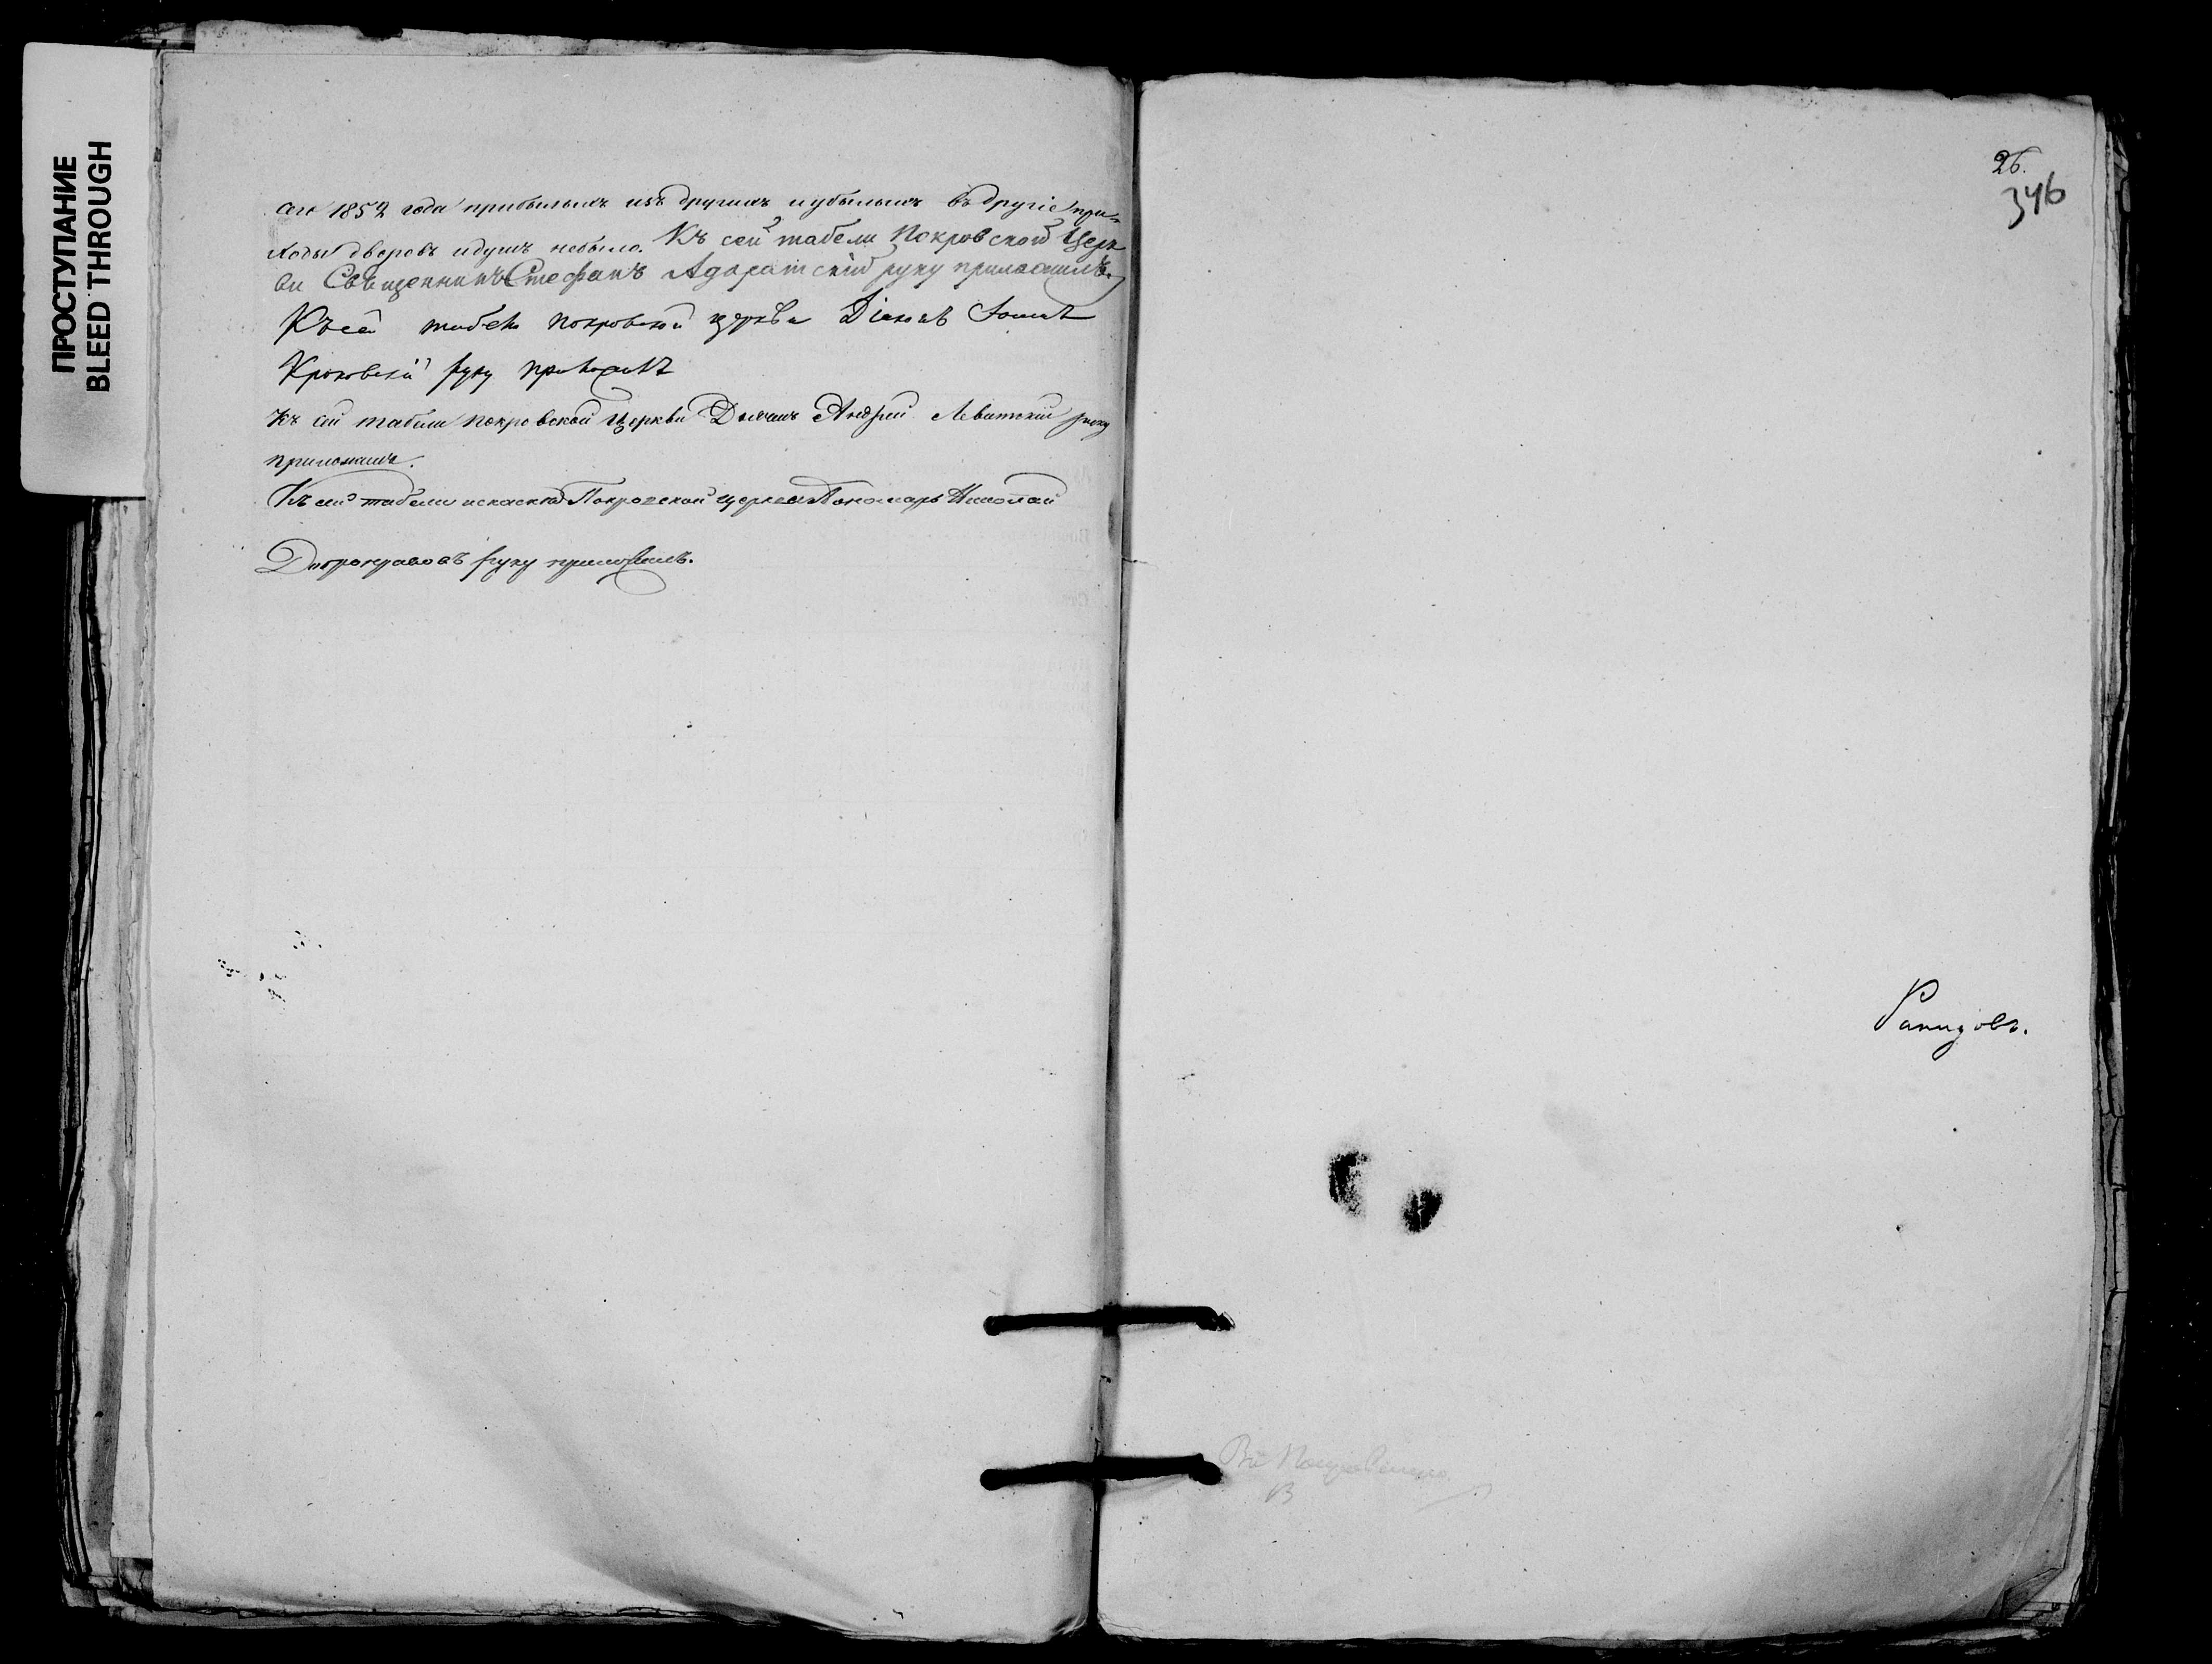 ПРОСТУПАНИЕ
BLEED THROUGH
сего 1852 года прибылыхъ изъ другихъ и убылыхъ въ другіе при-
ходы дворовъ и душъ небыло. Къ сей табели Покровской Церк
ви Священникъ Стефанъ Адоратскій руку приложилъ.
Къ сей табели покровской церкви Діаконъ
руку приложилъ
Къ сей табели покровской Церкви Дьячекъ Андрей Левитскій руку
приложилъ.
Къ сей табели Покровской церкви Пономарь Николай
Добронравовъ руку приложилъ.
26.
346